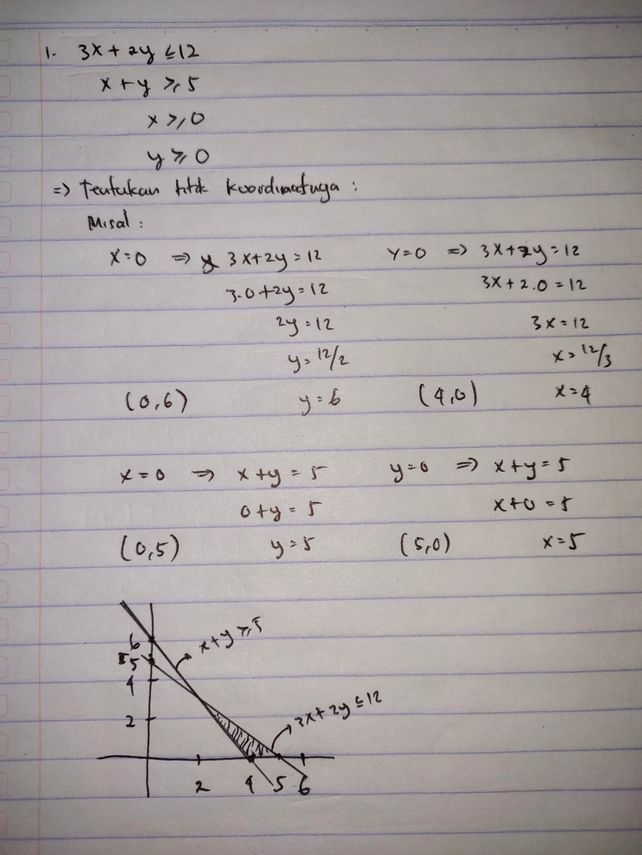 1. 3x + 2y ≤ 12
x + y ≥ 5
x ≥ 0
y ≥ 0
=> Tentukan titik koordinatnya :
Misal :
x = 0 => y 3x + 2y = 12
3.0 + 2y = 12
2y = 12
y = 12/2
(0,6) y = 6
y = 0 => 3x + 2y = 12
3x + 2.0 = 12
3x = 12
x = 12/3
(4,0) x = 4
x = 0 => x + y = 5
0 + y = 5
(0,5) y = 5
y = 0 => x + y = 5
x + 0 = 5
(5,0) x = 5
x + y ≥ 5
6
5
4
2
3x + 2y ≤ 12
2 4 5 6